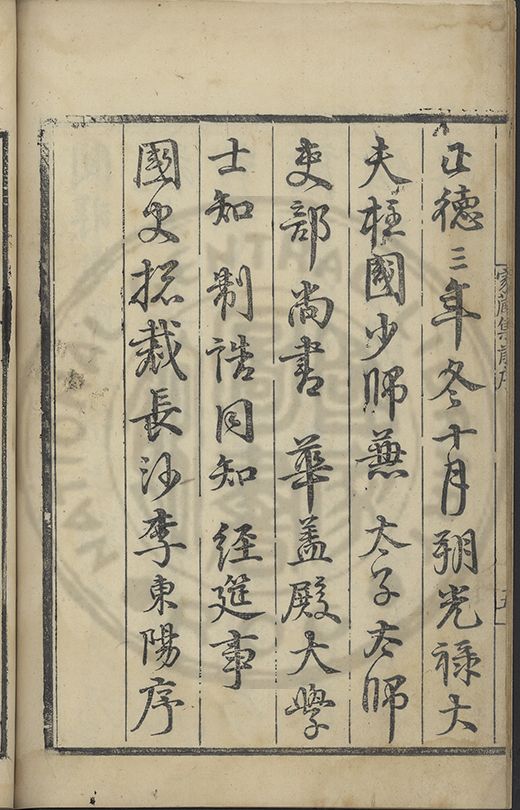 正德三年冬十月朔光禄大
夫柱國少師兼 太子太師
吏部尚書 華盖殿大學
士知 制誥同知 經筵事
國史揔裁長沙李東陽序
家藏集前序